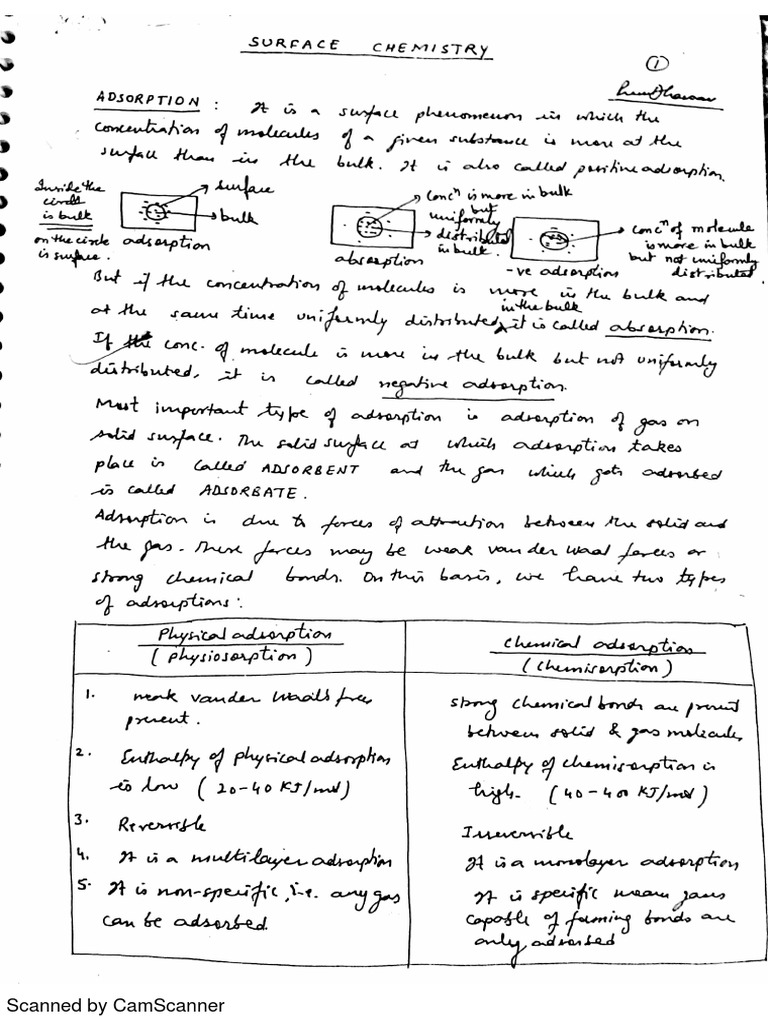 SURFACE CHEMISTRY
1
ADSORPTION : It is a surface phenomenon in which the
concentration of molecules of a given substance is more at the
surface than in the bulk. It is also called positive adsorption.
Inside the
circle
is bulk
on the circle
is surface.
surface
bulk
adsorption
concn is more in bulk
but
uniformly
distributed
in bulk.
absorption
concn of molecule
is more in bulk
but not uniformly
distributed.
-ve adsorption
But if the concentration of molecules is more in the bulk and
in the bulk
at the same time uniformly distributed, it is called absorption.
If the conc. of molecule is more in the bulk but not uniformly
distributed, it is called negative adsorption.
Most important type of adsorption is adsorption of gas on
solid surface. The solid surface at which adsorption takes
place is called ADSORBENT and the gas which gets adsorbed
is called ADSORBATE.
Adsorption is due to forces of attraction between the solid and
the gas. These forces may be weak van der waal forces or
strong chemical bonds. On this basis, we have two types
of adsorptions :
Physical adsorption
(physiosorption)
1. weak vander Waals forces
present.
2. Enthalpy of physical adsorption
is low (20-40 KJ/mol)
3. Reversible
4. It is a multilayer adsorption
5. It is non-specific, i.e. any gas
can be adsorbed.
Chemical adsorption
(Chemisorption)
strong chemical bonds are present
between solid & gas molecules
Enthalpy of chemisorption is
high. (40-400 KJ/mol)
Irreversible
It is a monolayer adsorption
It is specific means gases
capable of forming bonds are
only adsorbed
Scanned by CamScanner